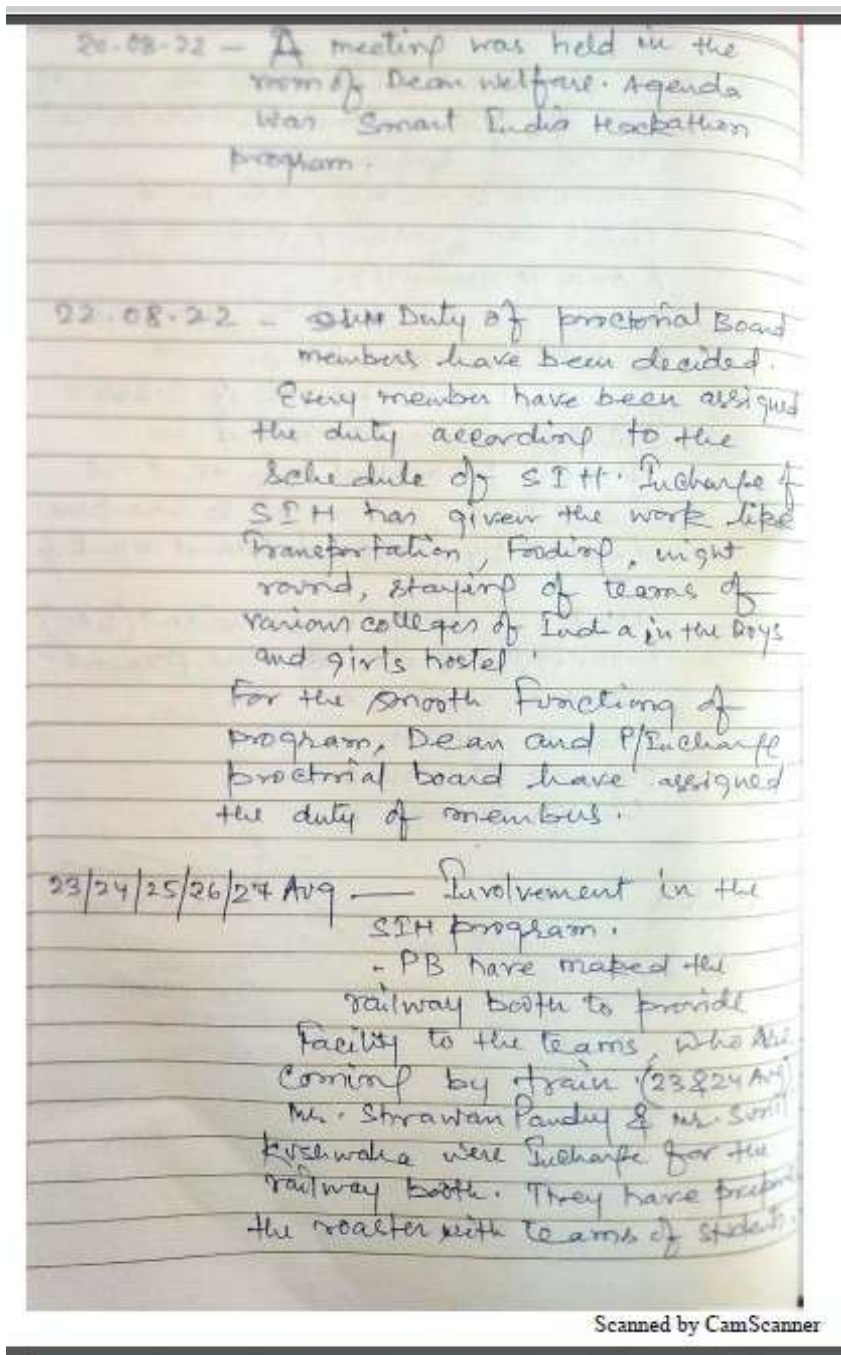 20-08-22 - A meeting was held in the
room of Dean welfare. Agenda
was Smart India Hackathon
program.
22.08.22 - Duty of proctorial Board
members have been decided.
Every member have been assigned
the duty according to the
Schedule of SIH. Incharge of
SIH has given the work like
Transportation, Fooding, night
round, staying of teams of
various colleges of India in the Boys
and girls hostel
For the smooth Functiong of
program, Dean and P/Incharge
proctorial board have assigned
the duty of members.
23/24/25/26/27 Aug - Involvement in the
SIH program.
- PB have maked the
railway booth to provide
Facility to the teams, who are
coming by train (23 & 24 Aug)
Mr. Shrawan Pandey & Mr. Sunil
Kushwaha were Incharge for the
railway booth. They have
the roaster with teams of students.
Scanned by CamScanner